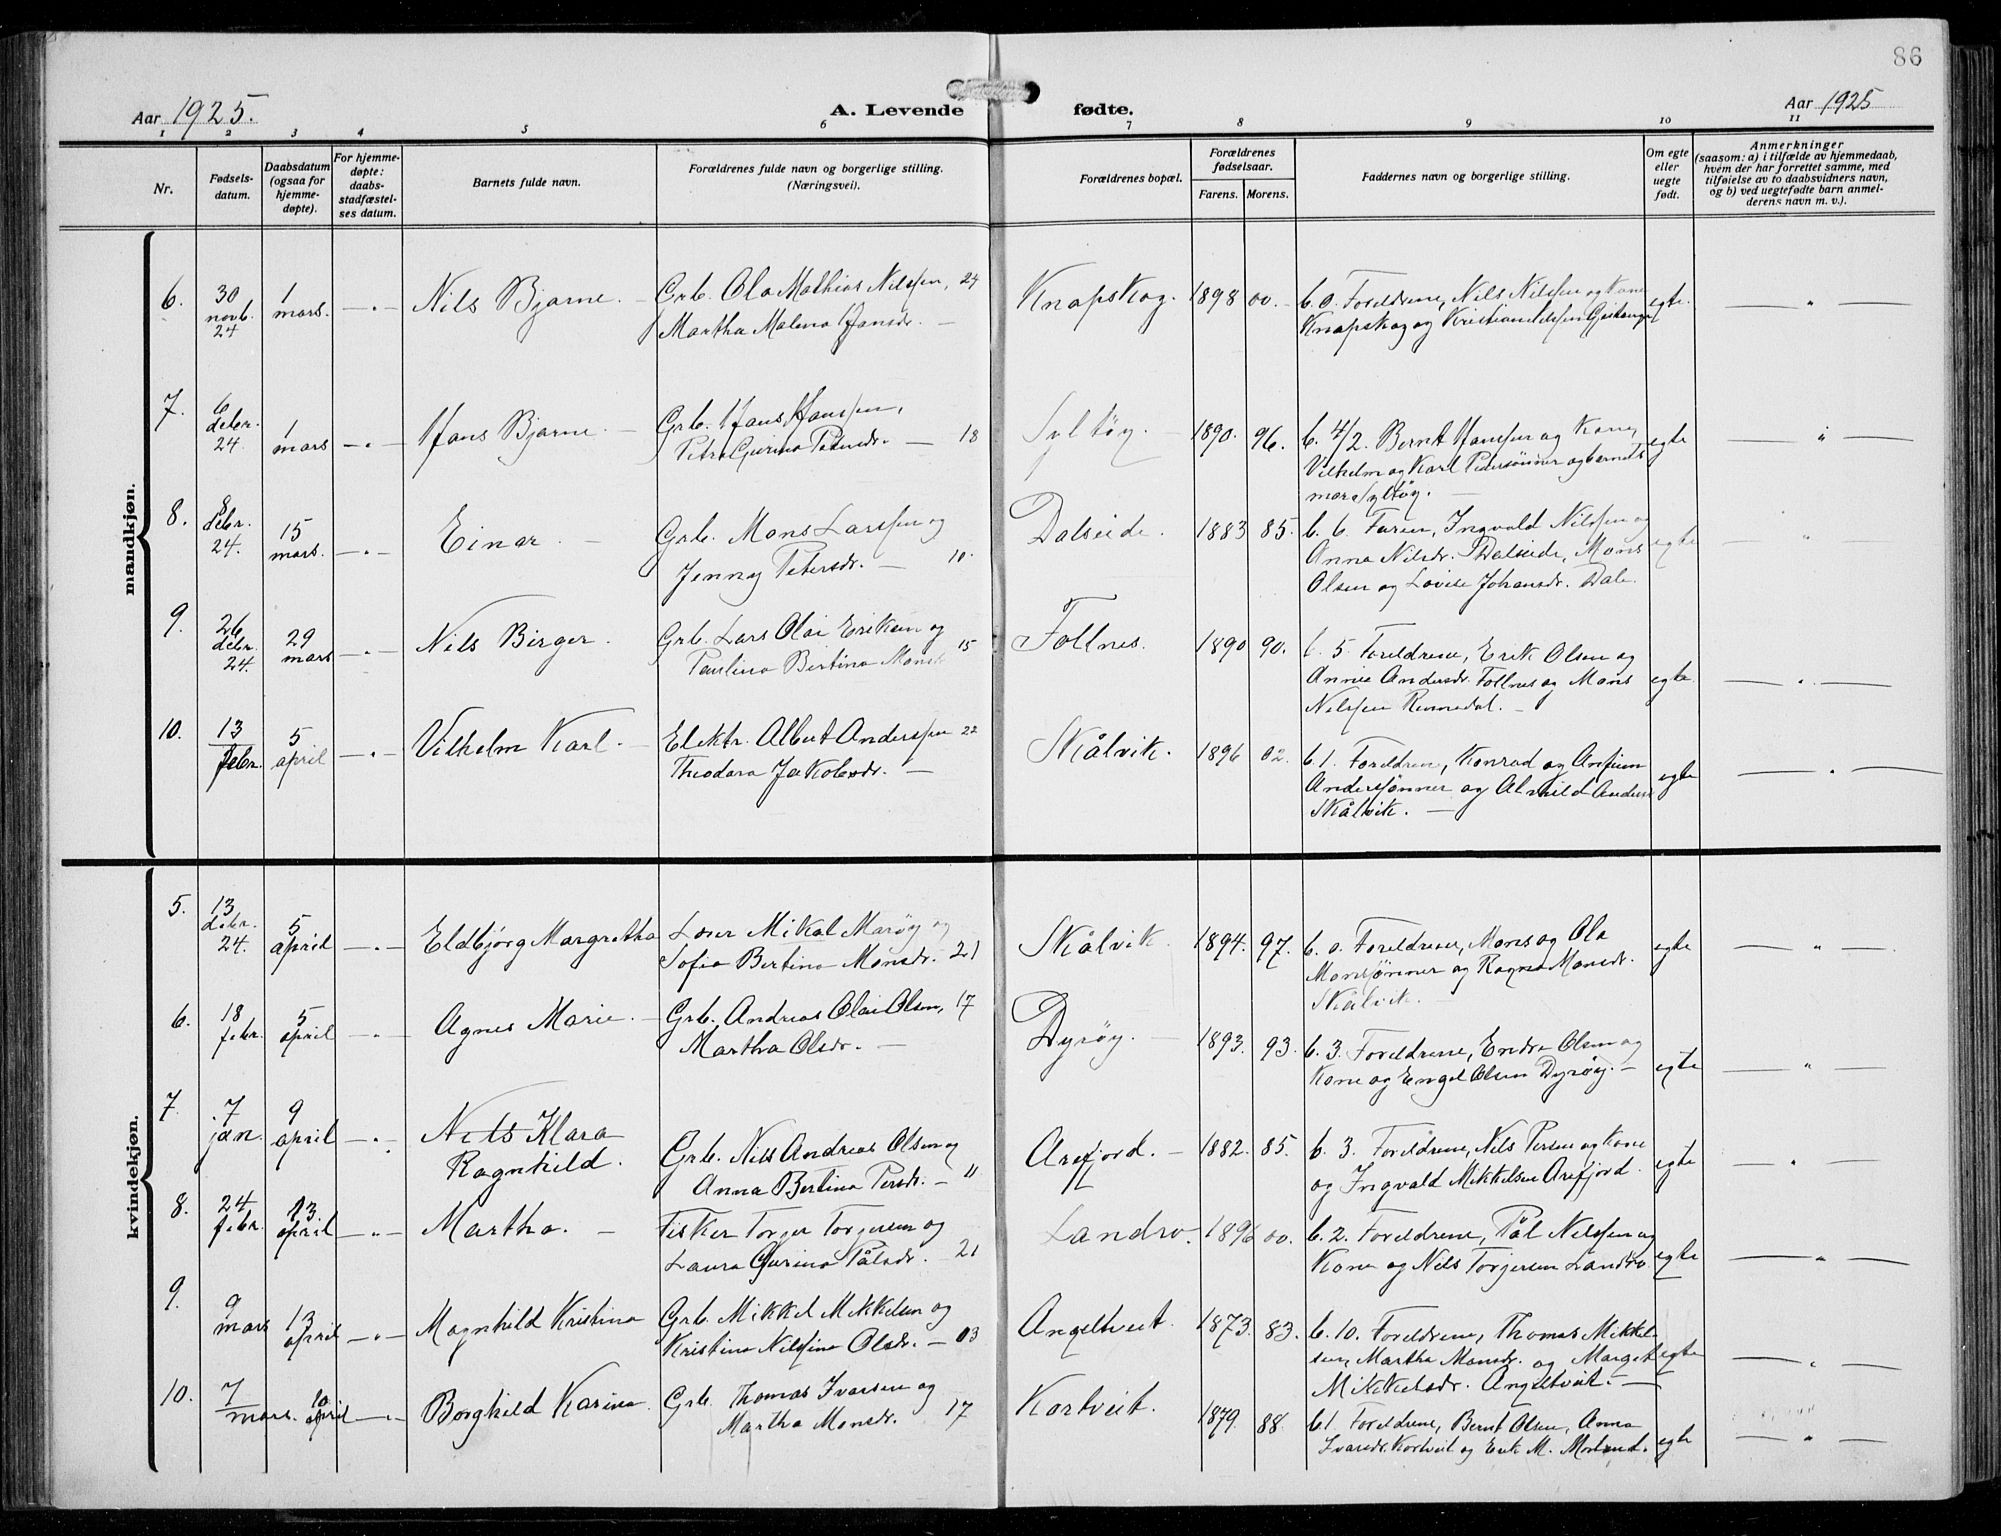 86
Aar 1925.
A. Levende fødte.
Aar 1925
1 2 3 4 5 6 7 8 9 10 11
Nr.
Fødsels-
datum.
Daabsdatum
(ogsaa for
hjemme-
døpte).
For hjemme-
døpte:
daabs-
stadfæstel-
ses datum.
Barnets fulde navn.
Forældrenes fulde navn og borgerlige stilling.
(Næringsvei).
Forældrenes bopæl.
Forældrenes
fødselsaar.
Farens. Morens.
Faddernes navn og borgerlige stilling.
Om egte
eller
uegte
født.
Anmerkninger
(saasom: a) i tilfælde av hjemmedaab,
hvem der har forrettet samme, med
tilføielse av to daabsvidners navn,
og b) ved uegtefødte barn anmel-
derens navn m. v.).
mandkjøn.
6. 30 novb. 24 1 mars. Nils Bjarne. Grb. Ola Mathias Nilssen, 24 Knapskog. 1898 00. 6.0. Foreldrene, Nils Nilssen og Kone egte.
Martha Malena Hansdr. Knapskog og Kristian
7. 6 debr. 24 1 mars Hans Bjarne Grb. Hans Hanssen, Syltøy. 1890. 96. 6. 4/2. Bernt Hanssen og Kone, egte
Petra Gurina Petersdr. 18 Vilhelm og Karl Pedersønner og barnets
mor Syltøy.
8. 8 debr. 24. 15 mars. Einar Grb. Mons Larssen og Dalseide. 1883 85. 6. 6. Faren, Ingvald Nilssen og egte
Jenny Petersdr. 10. Anna Nilsdr. Dalseide, Mons
Olsen og Lovise Johansdr. Dale.
9. 26 debr. 24. 29 mars Nils Birger. Grb. Lars Olai Eriksen og 15 Follnes. 1890 90. 6. 5. Foreldrene, Erik Olsen og egte.
Paulina Bertina Monsdr Annie Andersdr. Follnes og Mons
Nilssen
10. 13 febr. 5 april Vilhelm Karl. Elektr. Albert Anderssen 22 Skålvik. 1896 02. 6.1. Foreldrene, Konrad og Arnfinn egte
Theodora Jakobsdr. Anderssønner og Alvhild Anders
Skålvik.
kvindekjøn.
5. 13 debr. 24. 5 april Eldbjørg Margretha Mikal Marøy og Skålvik. 1894. 97. 6. 0. Foreldrene, Mons og Ola egte
Sofia Bertina Monsdr. 21 Monssønner og Ragna Monsdr.
Skålvik.
6. 18 febr. 5 april Agnes Marie. Grb. Andreas Olai Olsen, 17 Dyrøy. 1893. 93. 6. 3. Foreldrene, Endre Olsen og egte
Martha Olsdr. Kone og Engel Olsen Dyrøy.
7. 7 jan. 9 april Nils Klara Grb. Nils Andreas Olsen og Arefjord. 1882. 85. 6. 3. Foreldrene, Nils Persen og Kone egte
Ragnhild. Anna Bertina Persdr. 11 og Ingvald Mikkelsen Arefjord.
8. 24 febr. 13 april Martha. Fisker Torger Torgersen og Landro. 1896 00. 6. 2. Foreldrene, Pål Nilssen og egte
Laura Gurina Pålsdr. 21 Kone og Nils Torgersen Landro.
9. 9 mars 13 april Magnhild Kristina Grb. Mikkel Mikkelsen og Angeltveit. 1873. 83. 6. 10. Foreldrene, Thomas Mikkel- egte
Kristina Nilsina Olsdr. 03 sen, Martha Monsdr. og Marget
Mikkelsdr. Angeltveit.
10. 7 mars. 10 april Borghild Karina. Grb. Thomas Ivarsen og Kortveit. 1879. 88. 6.1. Foreldrene, Bernt Olsen, Anna egte
Martha Monsdr. 17 Ivarsdr. Kortveit og Erik M.